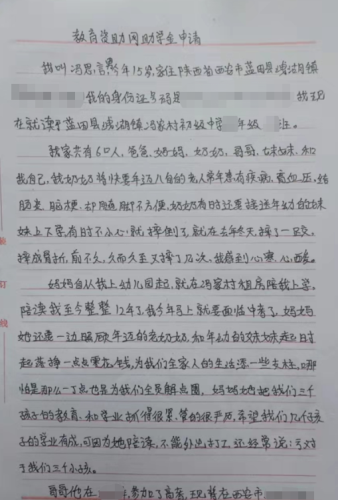 教育资助网助学金申请
我叫冯思言,今年15岁,家住陕西省西安市蓝田县 湖镇
我的身份证号码是 我现
在就读 蓝田县 湖镇冯家村初级中学 年级 班。
我家共有6口人,爸爸、妈妈、奶奶、哥哥、妹妹、和
我自己,我奶奶将快要年迈八旬的老人常年患有疾病,高血压、结
肠炎、脑梗、却腿脚不方便,奶奶有时还要接送年幼的妹
妹上下学有时不小心,就摔倒了,就在去年冬天,摔了一跤,
摔成骨折,前不久,久而久之又摔了几次,我感到心寒,心酸。
妈妈自从我上幼儿园起,就在冯家村租房陪我上学。
陪读我至今整整12年了,我今年马上就要面临中考了,妈妈
她还要一边照顾年迈的老奶奶,和年幼的妹妹起早
起落挣一点零花钱,为我们全家人的生活添一些支柱,哪
怕是那么一丁点也是为我们全员解点围,妈妈她把我们三个
孩子的教育、和学业抓得很累、管的很严厉,希望我们几个孩
子的学业有成,可因为她陪读,不能外出打工,还经常说:亏对
于我们三个小孩。
哥哥他在 参加了高考,现 在西安市